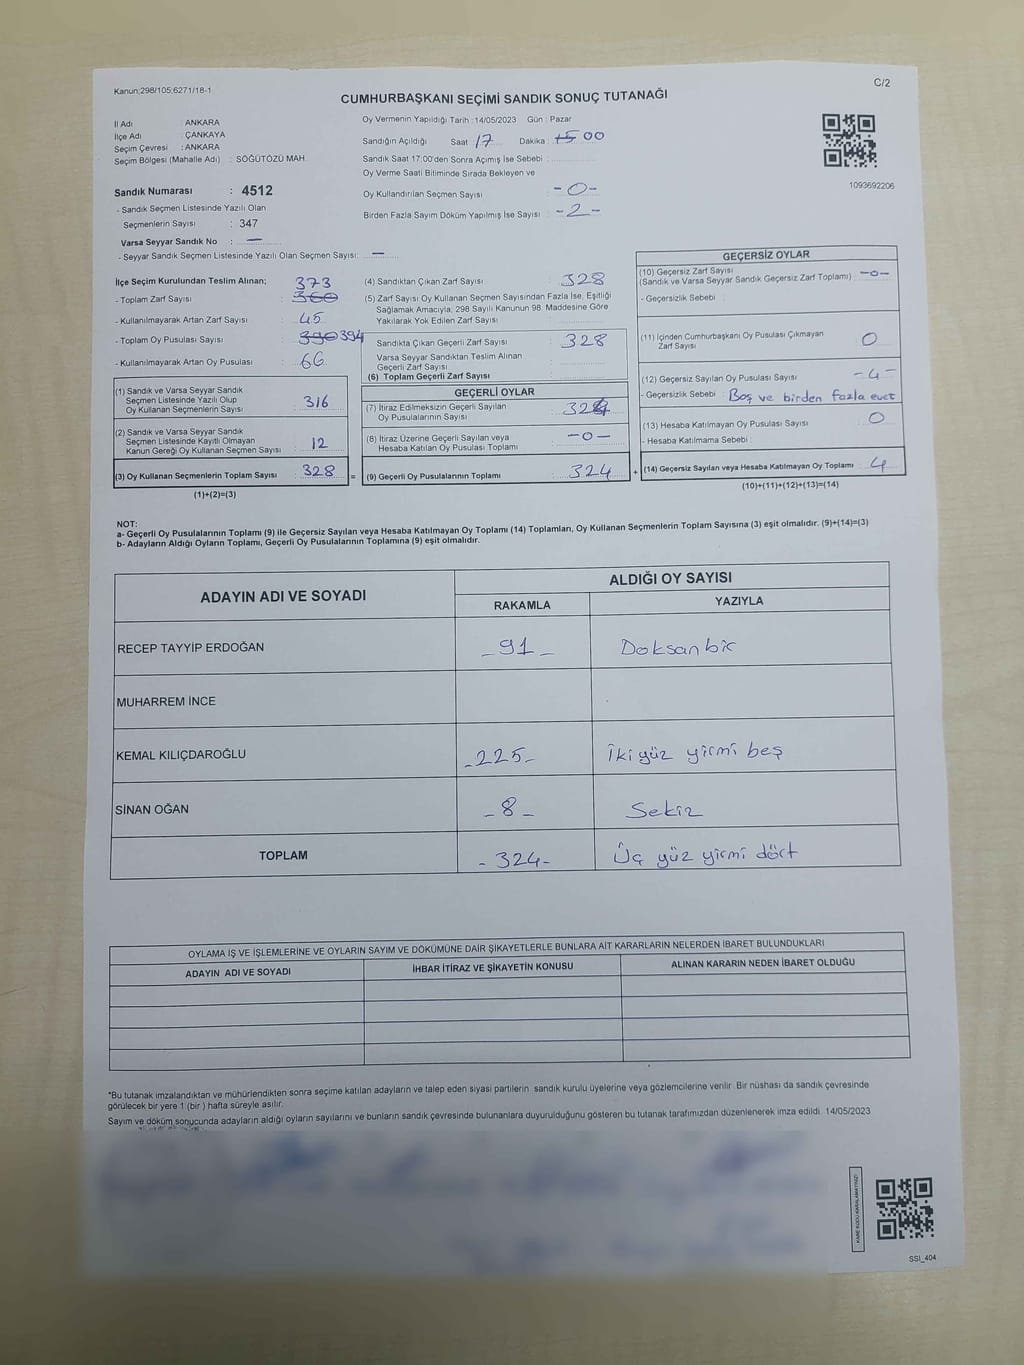 Kanun;298/105;6271/18-1
C/2
CUMHURBAŞKANI SEÇİMİ SANDIK SONUÇ TUTANAĞI
İl Adı : ANKARA
İlçe Adı : ÇANKAYA
Seçim Çevresi : ANKARA
Seçim Bölgesi (Mahalle Adı) : SÖĞÜTÖZÜ MAH.
Sandık Numarası : 4512
- Sandık Seçmen Listesinde Yazılı Olan
Seçmenlerin Sayısı : 347
Varsa Seyyar Sandık No : —
- Seyyar Sandık Seçmen Listesinde Yazılı Olan Seçmen Sayısı: —
Oy Vermenin Yapıldığı Tarih :14/05/2023 Gün : Pazar
Sandığın Açıldığı Saat 17 Dakika : 15 00
Sandık Saat 17:00'den Sonra Açımış İse Sebebi :
Oy Verme Saati Bitiminde Sırada Bekleyen ve
Oy Kullandırılan Seçmen Sayısı -0-
Birden Fazla Sayım Döküm Yapılmış İse Sayısı : -2-
1093692206
İlçe Seçim Kurulundan Teslim Alınan; 373
- Toplam Zarf Sayısı : 360
- Kullanılmayarak Artan Zarf Sayısı : 45
- Toplam Oy Pusulası Sayısı : 390 394
- Kullanılmayarak Artan Oy Pusulası : 66
(1) Sandık ve Varsa Seyyar Sandık
Seçmen Listesinde Yazılı Olup
Oy Kullanan Seçmenlerin Sayısı : 316
(2) Sandık ve Varsa Seyyar Sandık
Seçmen Listesinde Kayıtlı Olmayan
Kanun Gereği Oy Kullanan Seçmen Sayısı : 12
(3) Oy Kullanan Seçmenlerin Toplam Sayısı : 328 =
(1)+(2)=(3)
(4) Sandıktan Çıkan Zarf Sayısı : 328
(5) Zarf Sayısı Oy Kullanan Seçmen Sayısından Fazla İse, Eşitliği
Sağlamak Amacıyla; 298 Sayılı Kanunun 98. Maddesine Göre
Yakılarak Yok Edilen Zarf Sayısı :
Sandıkta Çıkan Geçerli Zarf Sayısı : 328
Varsa Seyyar Sandıktan Teslim Alınan
Geçerli Zarf Sayısı :
(6) Toplam Geçerli Zarf Sayısı
GEÇERLİ OYLAR
(7) İtiraz Edilmeksizin Geçerli Sayılan
Oy Pusulalarının Sayısı : 324
(8) İtiraz Üzerine Geçerli Sayılan veya
Hesaba Katılan Oy Pusulası Toplamı : -0-
(9) Geçerli Oy Pusulalarının Toplamı : 324 +
GEÇERSİZ OYLAR
(10) Geçersiz Zarf Sayısı
(Sandık ve Varsa Seyyar Sandık Geçersiz Zarf Toplamı) : -0-
- Geçersizlik Sebebi :
(11) İçinden Cumhurbaşkanı Oy Pusulası Çıkmayan
Zarf Sayısı : 0
(12) Geçersiz Sayılan Oy Pusulası Sayısı : -4-
- Geçersizlik Sebebi : Boş ve birden fazla evet
(13) Hesaba Katılmayan Oy Pusulası Sayısı : 0
- Hesaba Katılmama Sebebi :
(14) Geçersiz Sayılan veya Hesaba Katılmayan Oy Toplamı : 4
(10)+(11)+(12)+(13)=(14)
NOT:
a- Geçerli Oy Pusulalarının Toplamı (9) ile Geçersiz Sayılan veya Hesaba Katılmayan Oy Toplamı (14) Toplamları, Oy Kullanan Seçmenlerin Toplam Sayısına (3) eşit olmalıdır. (9)+(14)=(3)
b- Adayların Aldığı Oyların Toplamı, Geçerli Oy Pusulalarının Toplamına (9) eşit olmalıdır.
ADAYIN ADI VE SOYADI
ALDIĞI OY SAYISI
RAKAMLA YAZIYLA
RECEP TAYYİP ERDOĞAN -91- Doksanbir
MUHARREM İNCE
KEMAL KILIÇDAROĞLU -225- İkiyüz yirmi beş
SİNAN OĞAN -8- Sekiz
TOPLAM -324- Üç yüz yirmi dört
OYLAMA İŞ VE İŞLEMLERİNE VE OYLARIN SAYIM VE DÖKÜMÜNE DAİR ŞİKAYETLERLE BUNLARA AİT KARARLARIN NELERDEN İBARET BULUNDUKLARI
ADAYIN ADI VE SOYADI İHBAR İTİRAZ VE ŞİKAYETİN KONUSU ALINAN KARARIN NEDEN İBARET OLDUĞU
*Bu tutanak imzalandıktan ve mühürlendikten sonra seçime katılan adayların ve talep eden siyasi partilerin sandık kurulu üyelerine veya gözlemcilerine verilir. Bir nüshası da sandık çevresinde
görülecek bir yere 1 (bir ) hafta süreyle asılır.
Sayım ve döküm sonucunda adayların aldığı oyların sayılarını ve bunların sandık çevresinde bulunanlara duyurulduğunu gösteren bu tutanak tarafımızdan düzenlenerek imza edildi. 14/05/2023
SSI_404